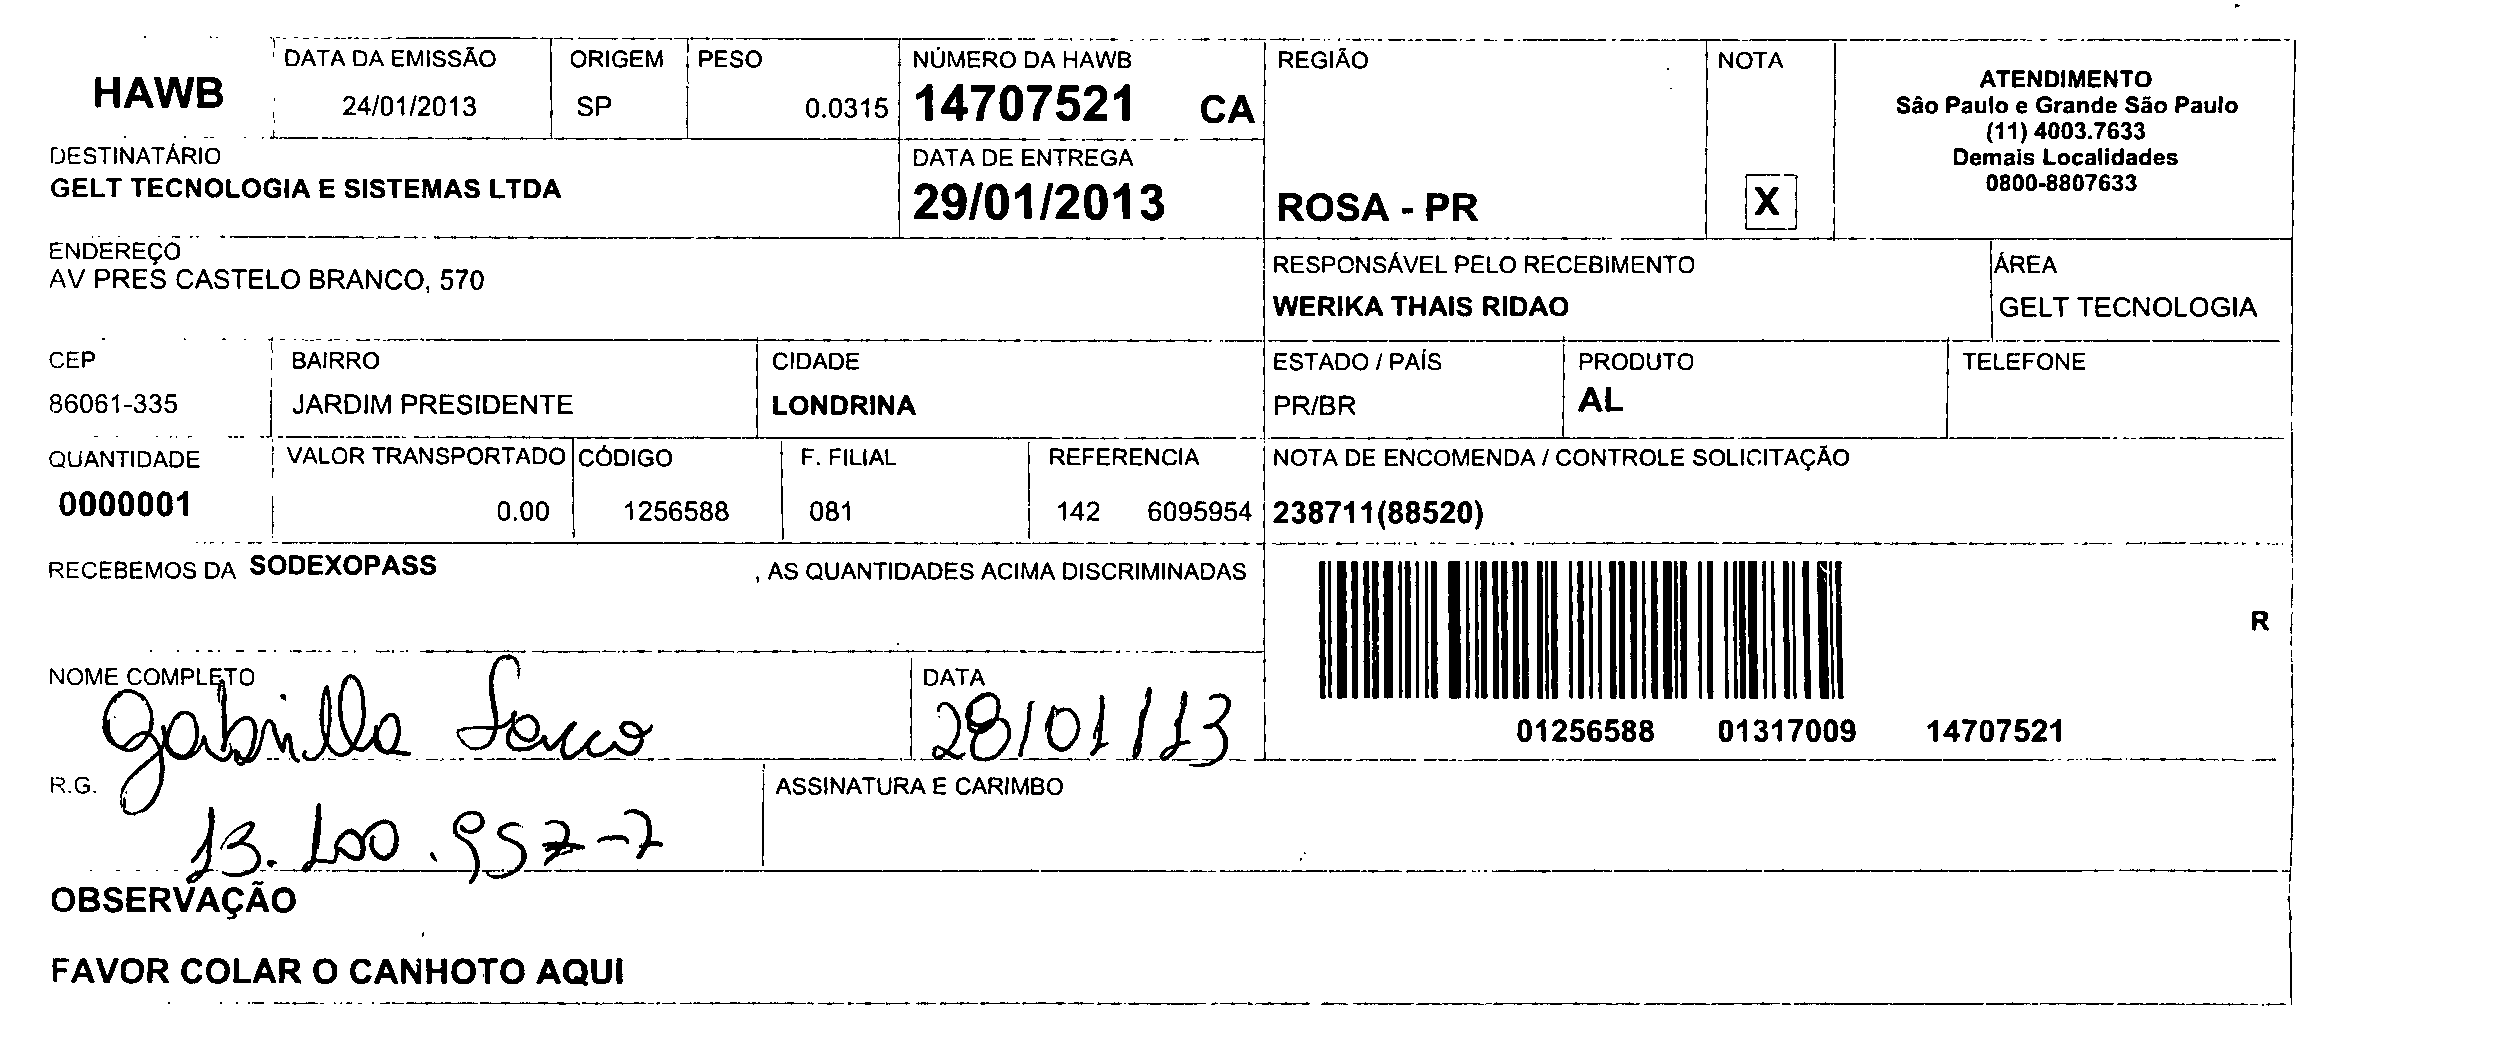 HAWB
DATA DA EMISSÃO
24/01/2013
ORIGEM
SP
PESO
0.0315
NÚMERO DA HAWB
14707521 CA
REGIÃO
ROSA - PR
NOTA
X
ATENDIMENTO
São Paulo e Grande São Paulo
(11) 4003.7633
Demais Localidades
0800-8807633
DESTINATÁRIO
GELT TECNOLOGIA E SISTEMAS LTDA
DATA DE ENTREGA
29/01/2013
ENDEREÇO
AV PRES CASTELO BRANCO, 570
RESPONSÁVEL PELO RECEBIMENTO
WERIKA THAIS RIDAO
ÁREA
GELT TECNOLOGIA
CEP
86061-335
BAIRRO
JARDIM PRESIDENTE
CIDADE
LONDRINA
ESTADO / PAÍS
PR/BR
PRODUTO
AL
TELEFONE
QUANTIDADE
0000001
VALOR TRANSPORTADO
0.00
CÓDIGO
1256588
F. FILIAL
081
REFERENCIA
142 6095954
NOTA DE ENCOMENDA / CONTROLE SOLICITAÇÃO
238711(88520)
RECEBEMOS DA SODEXOPASS , AS QUANTIDADES ACIMA DISCRIMINADAS
R
01256588 01317009 14707521
NOME COMPLETO
Gabrilla
DATA
28/01/13
R.G.
13.100.957-7
ASSINATURA E CARIMBO
OBSERVAÇÃO
FAVOR COLAR O CANHOTO AQUI